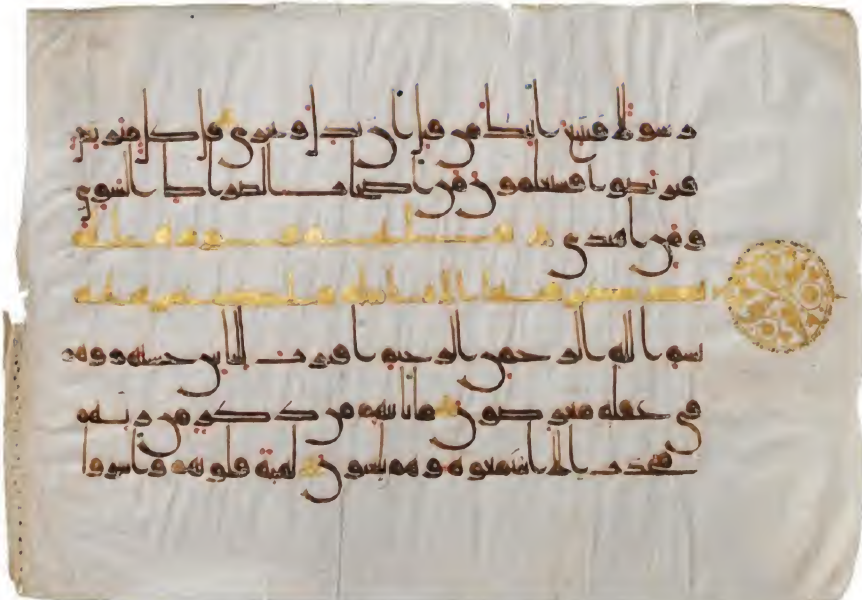 رسولا فنتبع ايتك من قبل ان نذل ونخزى قل كل متربص
فتربصوا فستعلمون من اصحب الصرط السوي
ومن اهتدى
الانبيا
بسم الله الرحمن الرحيم اقترب للناس حسبهم وهم
في غفلة معرضون ما ياتيهم من ذكر من ربهم
محدث الا استمعوه وهم يلعبون لهية قلوبهم واسروا